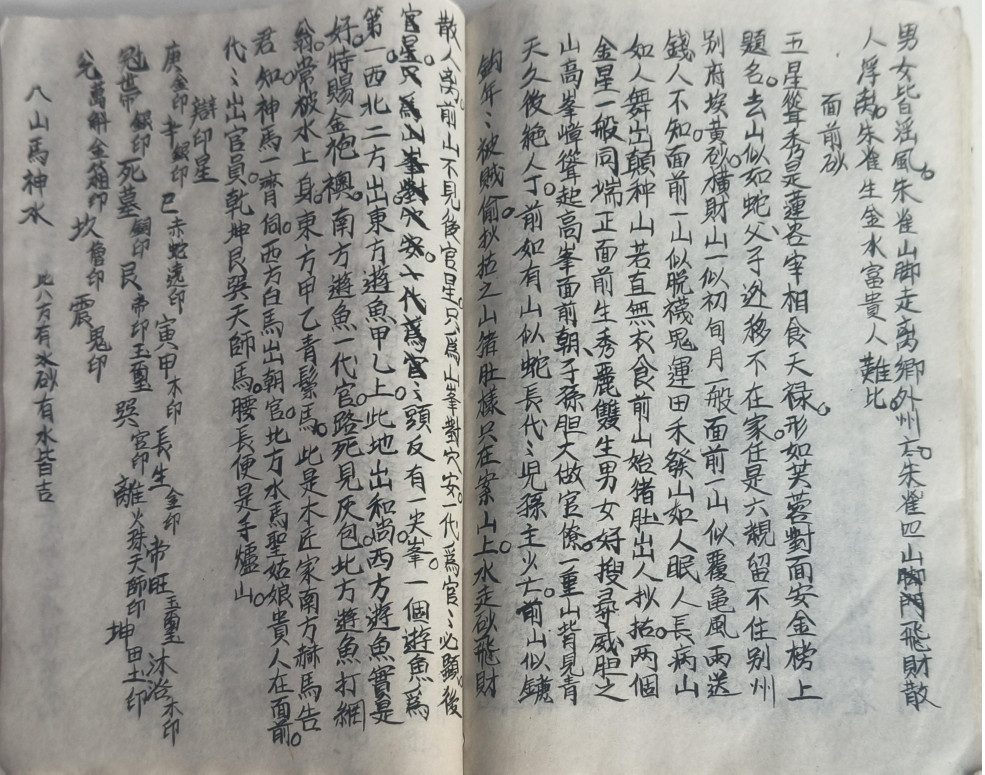 男女皆淫風。朱雀山脚走離鄉外州亡。朱雀四山脚閃飛財散
人浮蕩。朱雀生金水富貴人難比。
面前砂
五星聳秀是蓮峇宰相食天禄。形如芙蓉對面安金榜上
題名。去山似如蛇、父子逃移不在家。任是六親留不住別州
別府埃黄砂。橫財山一似初旬月一般面前一山似覆龜風雨送
錢人不知面前一山似脱襪鬼運田禾發山如人眠人長病山
如人舞出顛种山若直無衣食前山始猪肚出人抄拈。两個
金星一般同端正面前生秀麗雙生男女好搜尋威胆之
山高峯嶂聳起高峯面前朝、子孫胆大做官僚。一重山背見青
天久後絶人丁。前如有山似蛇長代〻児孫主火亡。前山似鐮
鈎年〻被賊偷。抄拈之山猪肚樣只在案山上。水走砂飛財
散人离。前山不見後官星。只爲山峯對穴安一代爲官〻必顯後
官星只爲山峯對穴安。一代爲官〻頭反有一尖峯。一個遊魚爲
第一西北二方出出東方遊魚甲乙上此地出和尚。西方遊魚實是
好。特賜金袍襖。南方遊魚一代官。路死見灰包北方遊魚打網
翁。常破水上身。東方甲乙青鬃馬。此是木匠家南方赫馬告
君知。神馬一齊伺。西方白馬出朝官。北方水馬聖姑娘貴人在面前。
代〻出官員。乾坤艮巽天師馬。腰長便是手爐山。
辯印星
庚金印 辛銀印 巳赤蛇遶印 寅甲木印 長生金印 帝旺玉璽 沐浴木印
冠帶銀印 死墓銅印 艮帝印玉璽 巽宮印 離火珠天師印 坤田土印
兌萬斛金箱印 坎僧印 震鬼印
八山馬神水 此八方有水砂有水皆吉